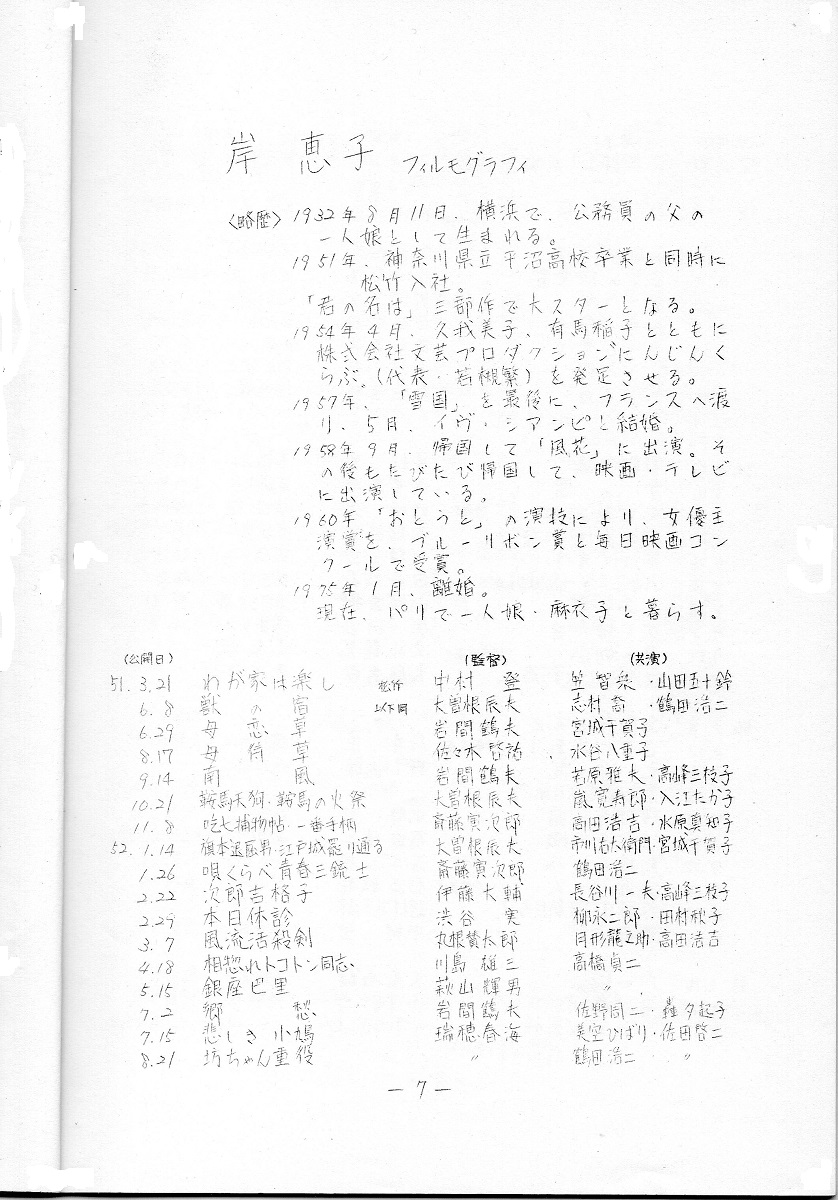 岸 恵子 フィルモグラフィ
〈略歴〉 1932年8月11日、横浜で、公務員の父の
一人娘として生まれる。
1951年、神奈川県立平沼高校卒業と同時に
松竹入社。
「君の名は」三部作で大スターとなる。
1954年4月、久我美子、有馬稲子とともに
株式会社文芸プロダクションにんじんく
らぶ。(代表・若槻繁)を発足させる。
1957年、「雪国」を最後に、フランスへ渡
り、5月、イヴ・シアンピと結婚。
1958年9月、帰国して「風花」に出演。そ
の後もたびたび帰国して、映画・テレビ
に出演している。
1960年「おとうと」の演技により、女優主
演賞を、ブルーリボン賞と毎日映画コン
クールで受賞。
1975年1月、離婚。
現在、パリで一人娘・麻衣子と暮らす。
(公開日) (監督) (共演)
51. 3.21 わが家は楽し 松竹 中村 登 笠智衆・山田五十鈴
6.8 獣の宿 以下同 大曽根辰夫 志村喬・鶴田浩二
6.29 母恋草 岩間鶴夫 宮城千賀子
8.17 母待草 佐々木啓祐 水谷八重子
9.14 南風 岩間鶴夫 若原雅夫・高峰三枝子
10.21 鞍馬天狗・鞍馬の火祭 大曽根辰夫 嵐寛寿郎・入江たか子
11.8 吃七捕物帖・一番手柄 斎藤寅次郎 高田浩吉・水原真知子
52. 1.14 旗本退屈男・江戸城罷り通る 大曽根辰夫 市川右太衛門・宮城千賀子
1.26 唄くらべ青春三銃士 斎藤寅次郎 鶴田浩二
2.22 次郎吉格子 伊藤大輔 長谷川一夫・高峰三枝子
2.29 本日休診 渋谷 実 柳永二郎・田村秋子
3.7 風流活殺剣 丸根賛太郎 月形龍之助・高田浩吉
4.18 相惚れトコトン同志 川島雄三 高橋貞二
5.15 銀座巴里 萩山輝男 〃
7.2 郷愁 岩間鶴夫 佐野周二・轟夕起子
7.15 悲しき小鳩 瑞穂春海 美空ひばり・佐田啓二
8.21 坊ちゃん重役 〃 鶴田浩二 〃
— 7 —